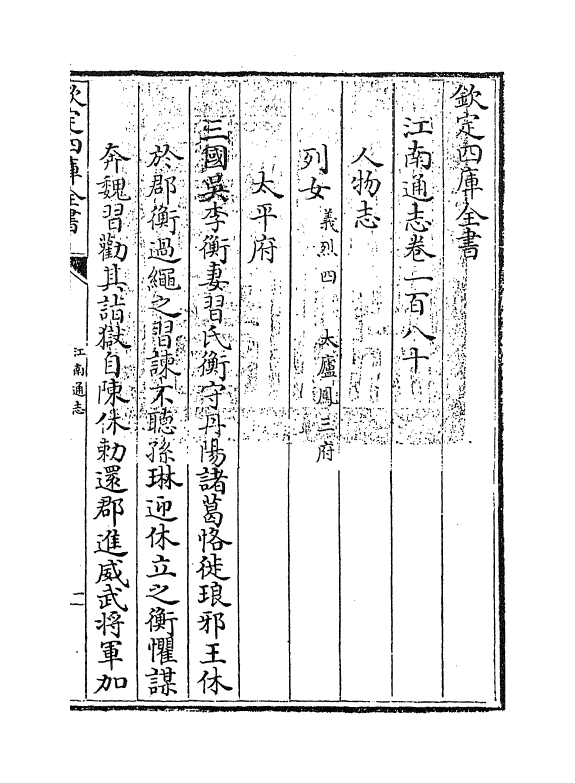 欽定四庫全書
江南通志卷一百八十
人物志
列女 義烈四 太廬鳳三府
太平府
三國吳李衡妻習氏衡守丹陽諸葛恪徙琅邪王休
於郡衡過繩之習諫不聽孫琳迎休立之衡懼謀
奔魏習勸其詣獄自陳休勅還郡進威武將軍加
欽定四庫全書
江南通志